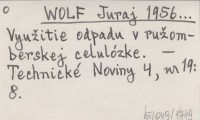 o
WOLF Juraj 1956...
Využitie odpadu v ružom-
berskej celulózke. —
Technické Noviny 4, nr 19:
8.